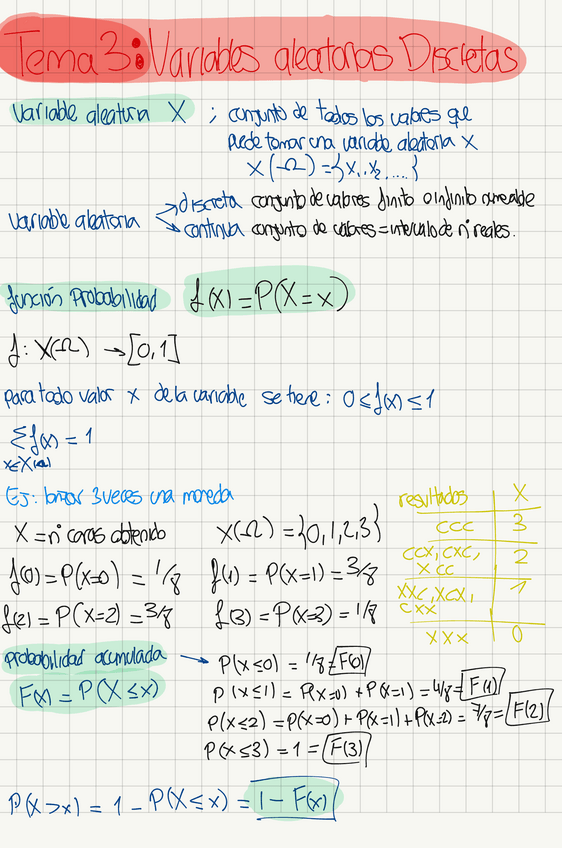 Tema 3: Variables aleatorias Discretas
Variable aleatoria X ; conjunto de todos los valores que
puede tomar una variable aleatoria X
X(Ω) = {x₁, x₂, ....}
variable aleatoria
discreta conjunto de valores finito o infinito numerable
continua conjunto de valores = intervalo de nº reales.
función probabilidad f(x) = P(X = x)
f: X(Ω) → [0,1]
para todo valor x de la variable se tiene: 0 ≤ f(x) ≤ 1
Σ f(x) = 1
x∈X(Ω)
Ej: lanzar 3 veces una moneda
X = nº caras obtenido X(Ω) = {0,1,2,3}
f(0) = P(X=0) = 1/8 f(1) = P(X=1) = 3/8
f(2) = P(X=2) = 3/8 f(3) = P(X=3) = 1/8
resultados X
CCC 3
CCX, CXC, 2
XCC
XXC, XCX, 1
CXX
XXX 0
probabilidad acumulada → P(X≤0) = 1/8 = F(0)
F(x) = P(X ≤ x)
P(X≤1) = P(X=0) + P(X=1) = 4/8 = F(1)
P(X≤2) = P(X=0) + P(X=1) + P(X=2) = 7/8 = F(2)
P(X≤3) = 1 = F(3)
P(X > x) = 1 - P(X ≤ x) = 1 - F(x)